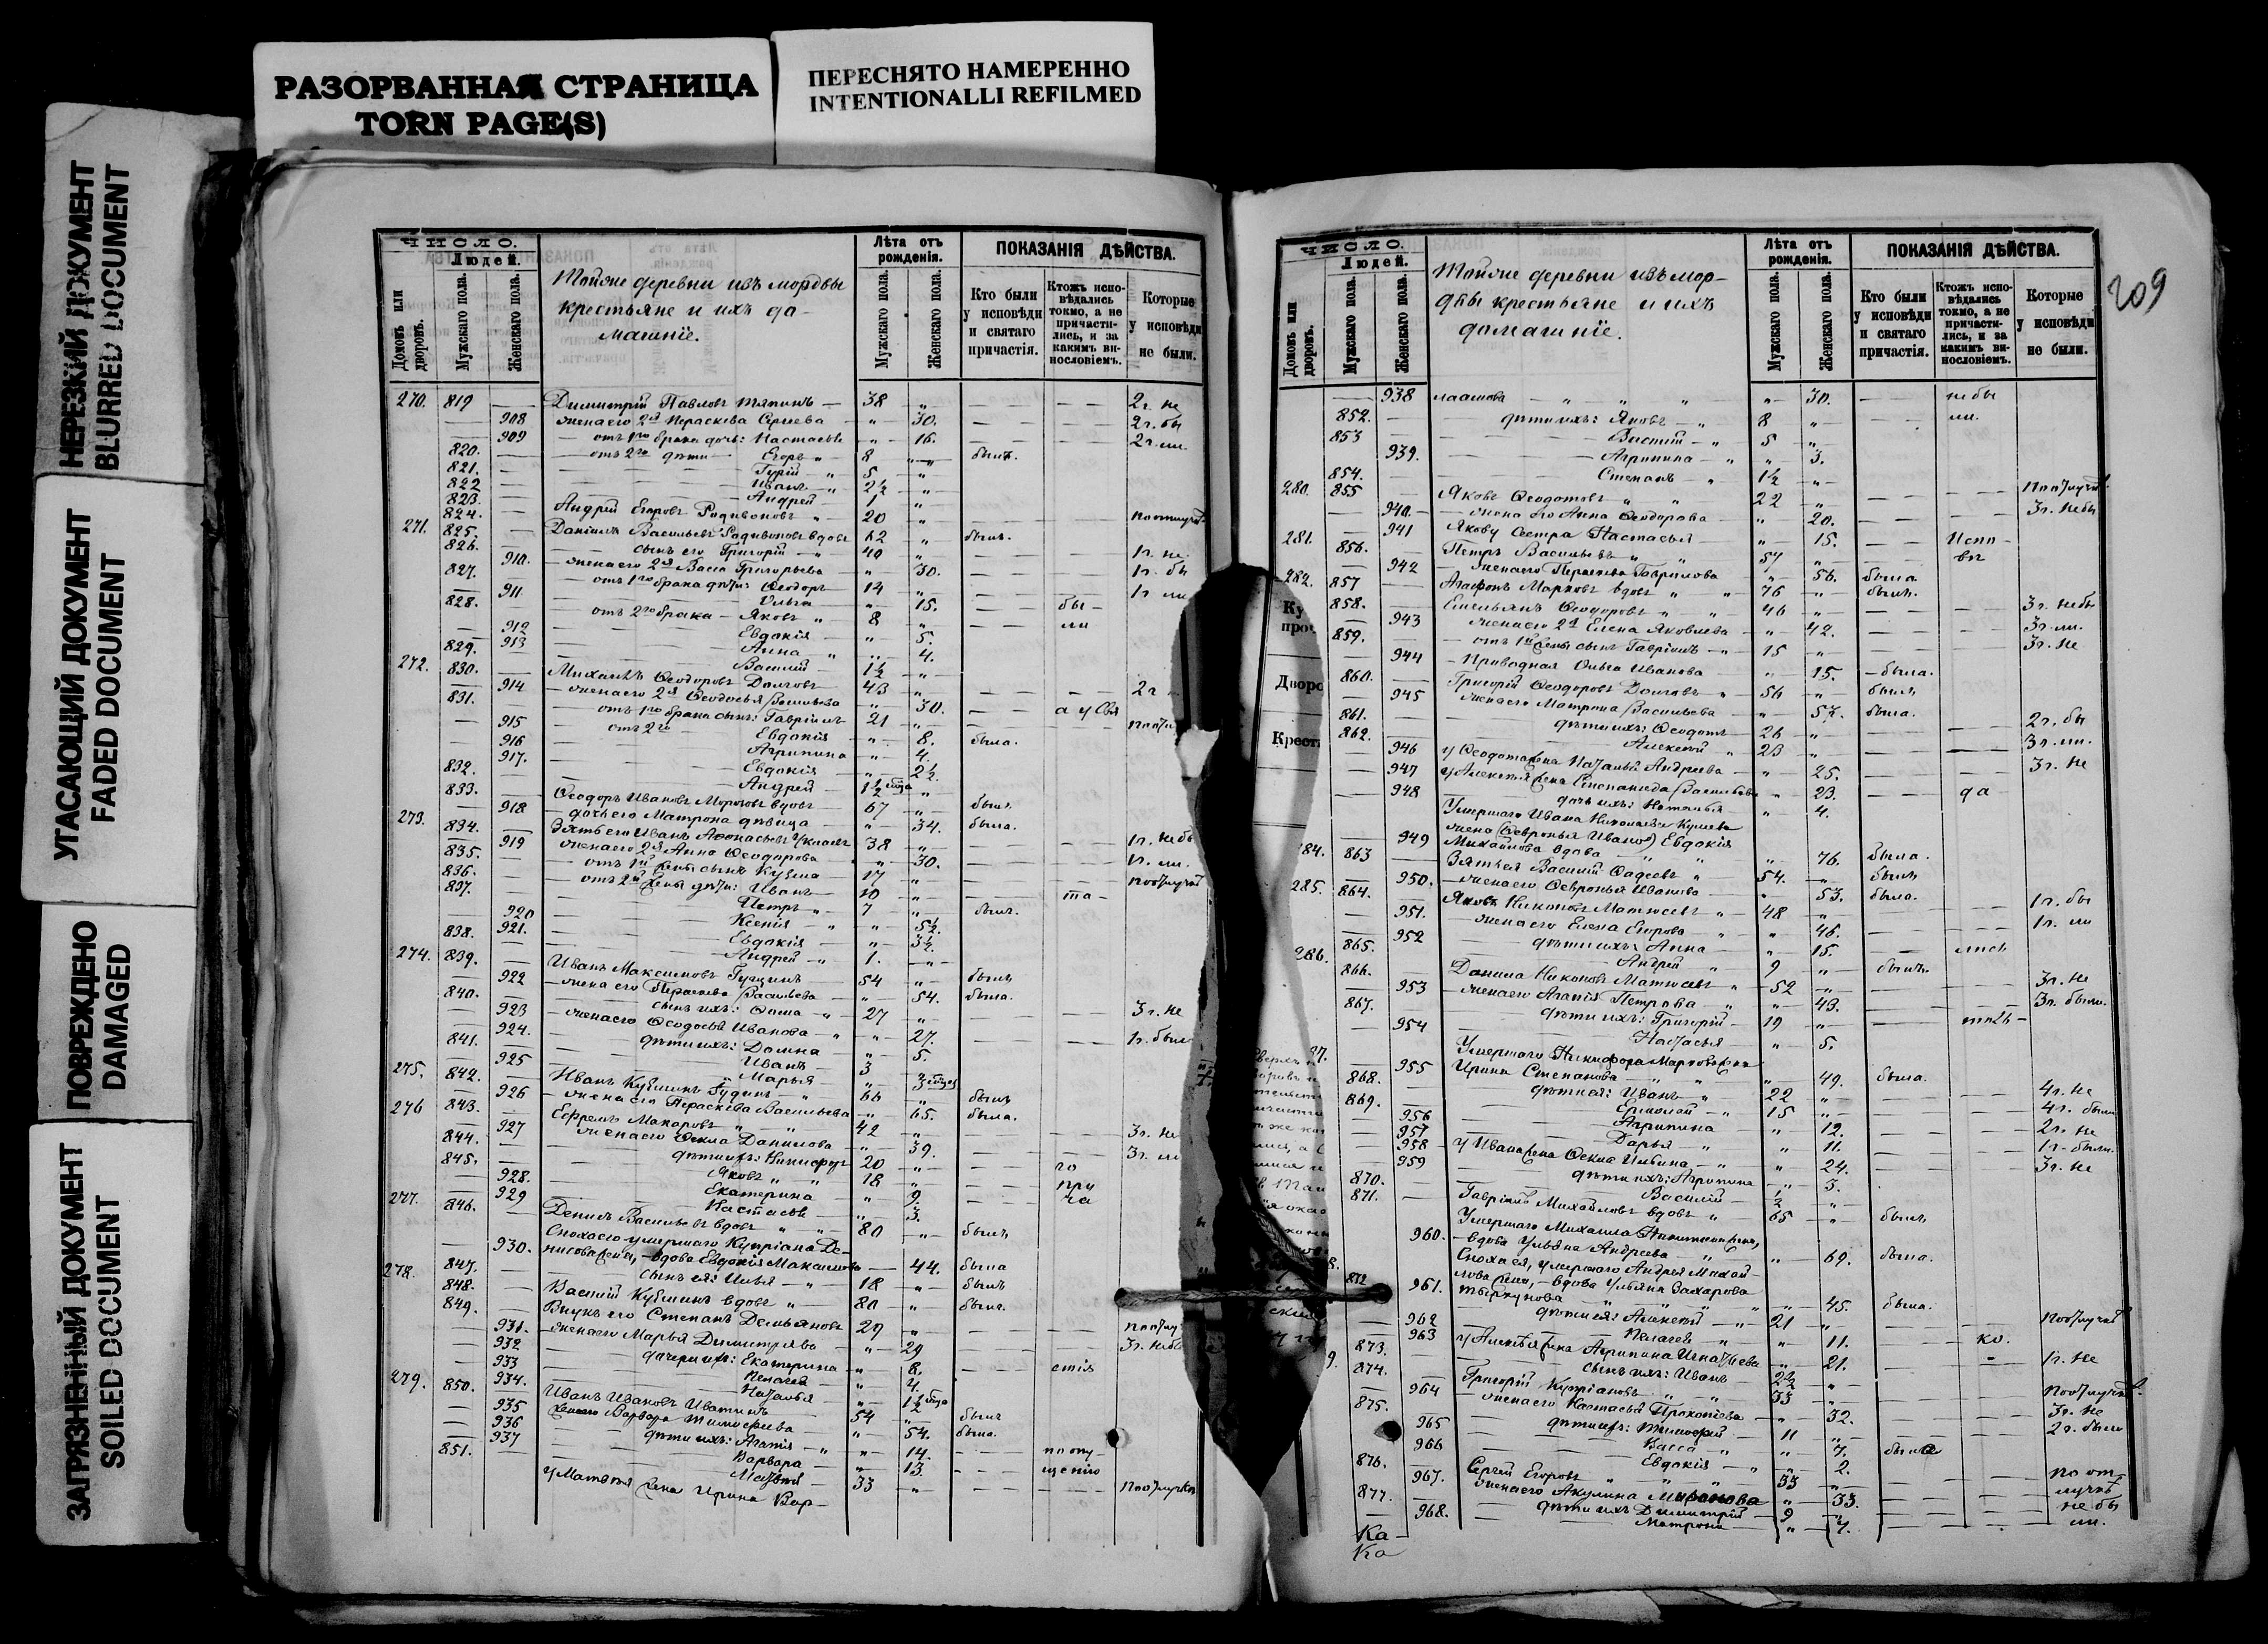 РАЗОРВАННАЯ СТРАНИЦА
TORN PAGE(S)
ПЕРЕСНЯТО НАМЕРЕННО
INTENTIONALLI REFILMED
НЕРЕЗКИЙ ДОКУМЕНТ
BLURRED DOCUMENT
УГАСАЮЩИЙ ДОКУМЕНТ
FADED DOCUMENT
ПОВРЕЖДЕНО
DAMAGED
ЗАГРЯЗНЕННЫЙ ДОКУМЕНТ
SOILED DOCUMENT
ЧИСЛО.
Людей.
Домовъ или дворовъ.
Мужскаго пола.
Женскаго пола.
Тойже деревни изъ мордвы
крестьяне и ихъ до-
машніе.
Лѣта отъ рожденія.
Мужскаго пола.
Женскаго пола.
ПОКАЗАНІЯ ДѢЙСТВА.
Кто были у исповѣди и святаго причастія.
Ктожъ испо-вѣдались токмо, а не причасти-лись, и за какимъ ви-нословіемъ.
Которые у исповѣди не были.
270. 819 Димитрій Павловъ 38 2 г. не
908 жена его 2я Параскева 30. 2 г. бы
909 отъ 1го брака дочь: Настасья 16. 2 г. ли
820. отъ 2го дѣти Егоръ 8 былъ.
821. Гурій 5
822 Иванъ 2½
823. Андрей 1
824. Андрей Егоровъ Радивоновъ 20
271. 825. Даніилъ Васильевъ Радивоновъ вдовъ 62 былъ.
826. сынъ его Григорій 40 1 г. не
910. жена его 2я Васса Григорьева 30. 1 г. бы
827. отъ 1го брака дѣти: Ѳеодоръ 14 1 г. ли
911 Ольга 15. бы-
828. отъ 2го брака Яковъ 8 ли
912 Евдокія 5.
913 Анна 4.
829. Василій 1½
272. 830. Михаилъ Ѳеодоровъ Долговъ 43 2 г
914 жена его 2я Ѳеодосья Васильева 30.
831. отъ 1го брака сынъ: Гавріилъ 21
915 отъ 2го Евдокія 8. была.
916 Агрипина 4.
917. Евдокія 2½.
832. Андрей 1½ года
833. Ѳеодоръ Ивановъ Морозовъ вдовъ 67 былъ.
918 дочь его Матрона дѣвица 34. была.
273. 834. Зять его Иванъ Аѳонасьевъ 38 1 г. небы
919 жена его 2я Анна Ѳеодорова 30. 1 г. ли.
835. отъ 1й жены сынъ Кузьма 17
836. отъ 2й жены дѣти: Иванъ 10 та-
837. Петръ 7 былъ.
920 Ксенія 5½.
921. Евдокія 3½.
838. Андрей 1.
274. 839. Иванъ Максимовъ 54 былъ
922 жена его Параскева Васильева 54. была.
840. сынъ ихъ: Ѳома 27 3 г. не
923 жена его Ѳеодосья Иванова 27. 1 г. был
924. дѣти ихъ: Домна 5.
841. Иванъ 3
925 Марья
275. 842. Иванъ 66 былъ
926 жена его Параскева Васильева 65. была.
276 843. Ефремъ Макаровъ 42 3 г. не
927 жена его Ѳекла Данилова 39. 3 г. ли
844. дѣти ихъ: Никифоръ 20
845. Яковъ 18 при
928. Екатерина 9. ча
929 Настасья 3.
277. 846. Денисъ Васильевъ вдовъ 80 былъ
Сноха его умершаго Купріана Де-
930. нисова жена, вдова Евдокія Максимова 44. была
847. сынъ ея: Илья 18 былъ
278. 848. Василій вдовъ 80 былъ.
849. Внукъ его Степанъ Демьяновъ 29
931. жена его Марья Димитріева 29 3 г. небы
932 дочери ихъ: Екатерина 8. стія
933 Пелагея 4.
934. Наталья 1½ года
279. 850. Иванъ Ивановъ 54 былъ
935 жена его Варвара Тимоѳеева 54. была.
936 дѣти ихъ: Агапія 14. по опу-
937 Варвара 13. щенію
851. Матвѣй 33
у Матвѣя жена Ирина Вар-
209
ЧИСЛО.
Людей.
Домовъ или дворовъ.
Мужскаго пола.
Женскаго пола.
Тойже деревни изъ мор-
двы крестьяне и ихъ
домашніе.
Лѣта отъ рожденія.
Мужскаго пола.
Женскаго пола.
ПОКАЗАНІЯ ДѢЙСТВА.
Кто были у исповѣди и святаго причастія.
Ктожъ испо-вѣдались токмо, а не причасти-лись, и за какимъ ви-нословіемъ.
Которые у исповѣди не были.
938 лаамова 30. небы
852. дѣти ихъ: Яковъ 8 ли.
853 Василій 5
939. Агрипина 3.
854. Степанъ 1½
280. 855 Яковъ Ѳеодотовъ 22
940. жена его Анна Ѳеодорова 20. 3 г. небы
941 Якову сестра Настасья 15. Испо-
281. 856. Петръ Васильевъ 57
942 жена его Параскева Гаврилова 56. была.
282. 857 Агаѳонъ Марковъ вдовъ 76 былъ.
858. Емельянъ Ѳеодоровъ 46 3 г. небы
943 жена его 2я Елена Яковлева 42. 3 г. ли.
859. отъ 1й жены сынъ Гавріилъ 15 3 г. не
944 Приводная Ольга Иванова 15. была.
860. Григорій Ѳеодоровъ Долговъ 56 былъ
945 жена его Матрона Васильева 57. была.
861. дѣти ихъ: Ѳеодотъ 26 2 г. бы
862. Алексѣй 23 3 г. ли.
946 у Ѳеодота жена Наталья Андреева 25. 3 г. не
947 у Алексѣя жена Степанида Васильева 23. да
948 дочь ихъ: Наталья 4.
Умершаго Ивана Николаева
жена (Ѳевронья Иванова) Евдокія
949 Михайлова вдова 76. была.
284. 863 Зять ея Василій Ѳадеевъ 54. былъ
950. жена его Ѳевронья Иванова 53. была.
285. 864. Яковъ Никоновъ 48 1 г. бы
951. жена его Елена Егорова 46. 1 г. ли
952 дѣти ихъ: Анна 15. лись
865. Андрей 9 былъ.
286. 866. Данила Никоновъ 52 3 г. не
953 жена его Агапія Петрова 43. 3 г. были.
867. дѣти ихъ: Григорій 19
954 Настасья 5.
Умершаго Никифора Маркова жена
955 Ирина Степанова 49. была.
868. дѣти ея: Иванъ 22 4 г. не
869. Ермолай 15 4 г. были
956 Агрипина 12. 2 г. не
957 Дарья 11. 1 г. были.
958 у Ивана жена Ѳекла Ильина 24. 3 г. не
959 дѣти ихъ: Агрипина 3.
870. Василій
871. Гавріилъ Михайловъ вдовъ 65 былъ
Умершаго Михаила жена,
960. вдова Ульяна Андреева 69. была.
Сноха ея, умершаго Андрея Михай-
лова жена, вдова Ульяна Захарова
961. 45. была.
872 дѣти ея: Алексѣй 21
962 Пелагея 11. ко.
963 у Алексѣя жена Агрипина Игнатьева 21. 1 г. не
873. сынъ ихъ: Иванъ
874. Григорій Купріановъ 33
964 жена его Настасья Прокопьева 32. 3 г. не
875. дѣти ихъ: Тимоѳей 11 2 г. были
965 Васса 7. была
966 Евдокія 2.
876. Сергѣй Егоровъ 33 по от-
967. жена его Акулина Миронова 33. лучкѣ
877. дѣти ихъ Димитрій 9 не бы
968. Матрона 7. ли.
Ка
Ка